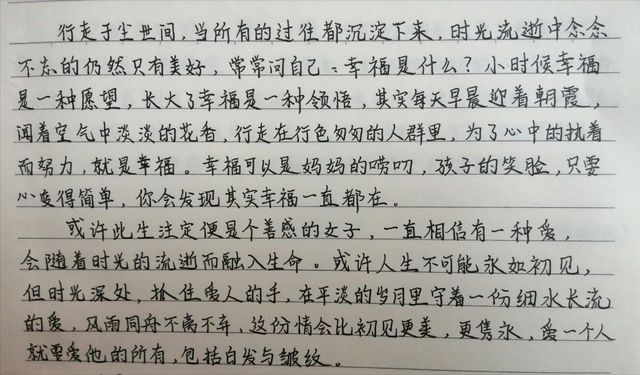 行走于尘世间，当所有的过往都沉淀下来，时光流逝中念念
不忘的仍然只有美好，常常问自己：幸福是什么？小时候幸福
是一种愿望，长大了幸福是一种领悟，其实每天早晨迎着朝霞，
闻着空气中淡淡的花香，行走在行色匆匆的人群里，为了心中的执着
而努力，就是幸福。幸福可以是妈妈的唠叨，孩子的笑脸，只要
心变得简单，你会发现其实幸福一直都在。
或许此生注定便是个善感的女子，一直相信有一种爱，
会随着时光的流逝而融入生命。或许人生不可能永如初见，
但时光深处，抓住爱人的手，在平淡的岁月里守着一份细水长流
的爱，风雨同舟不离不弃，这份情会比初见更美，更隽永，爱一个人
就要爱他的所有，包括白发与皱纹。